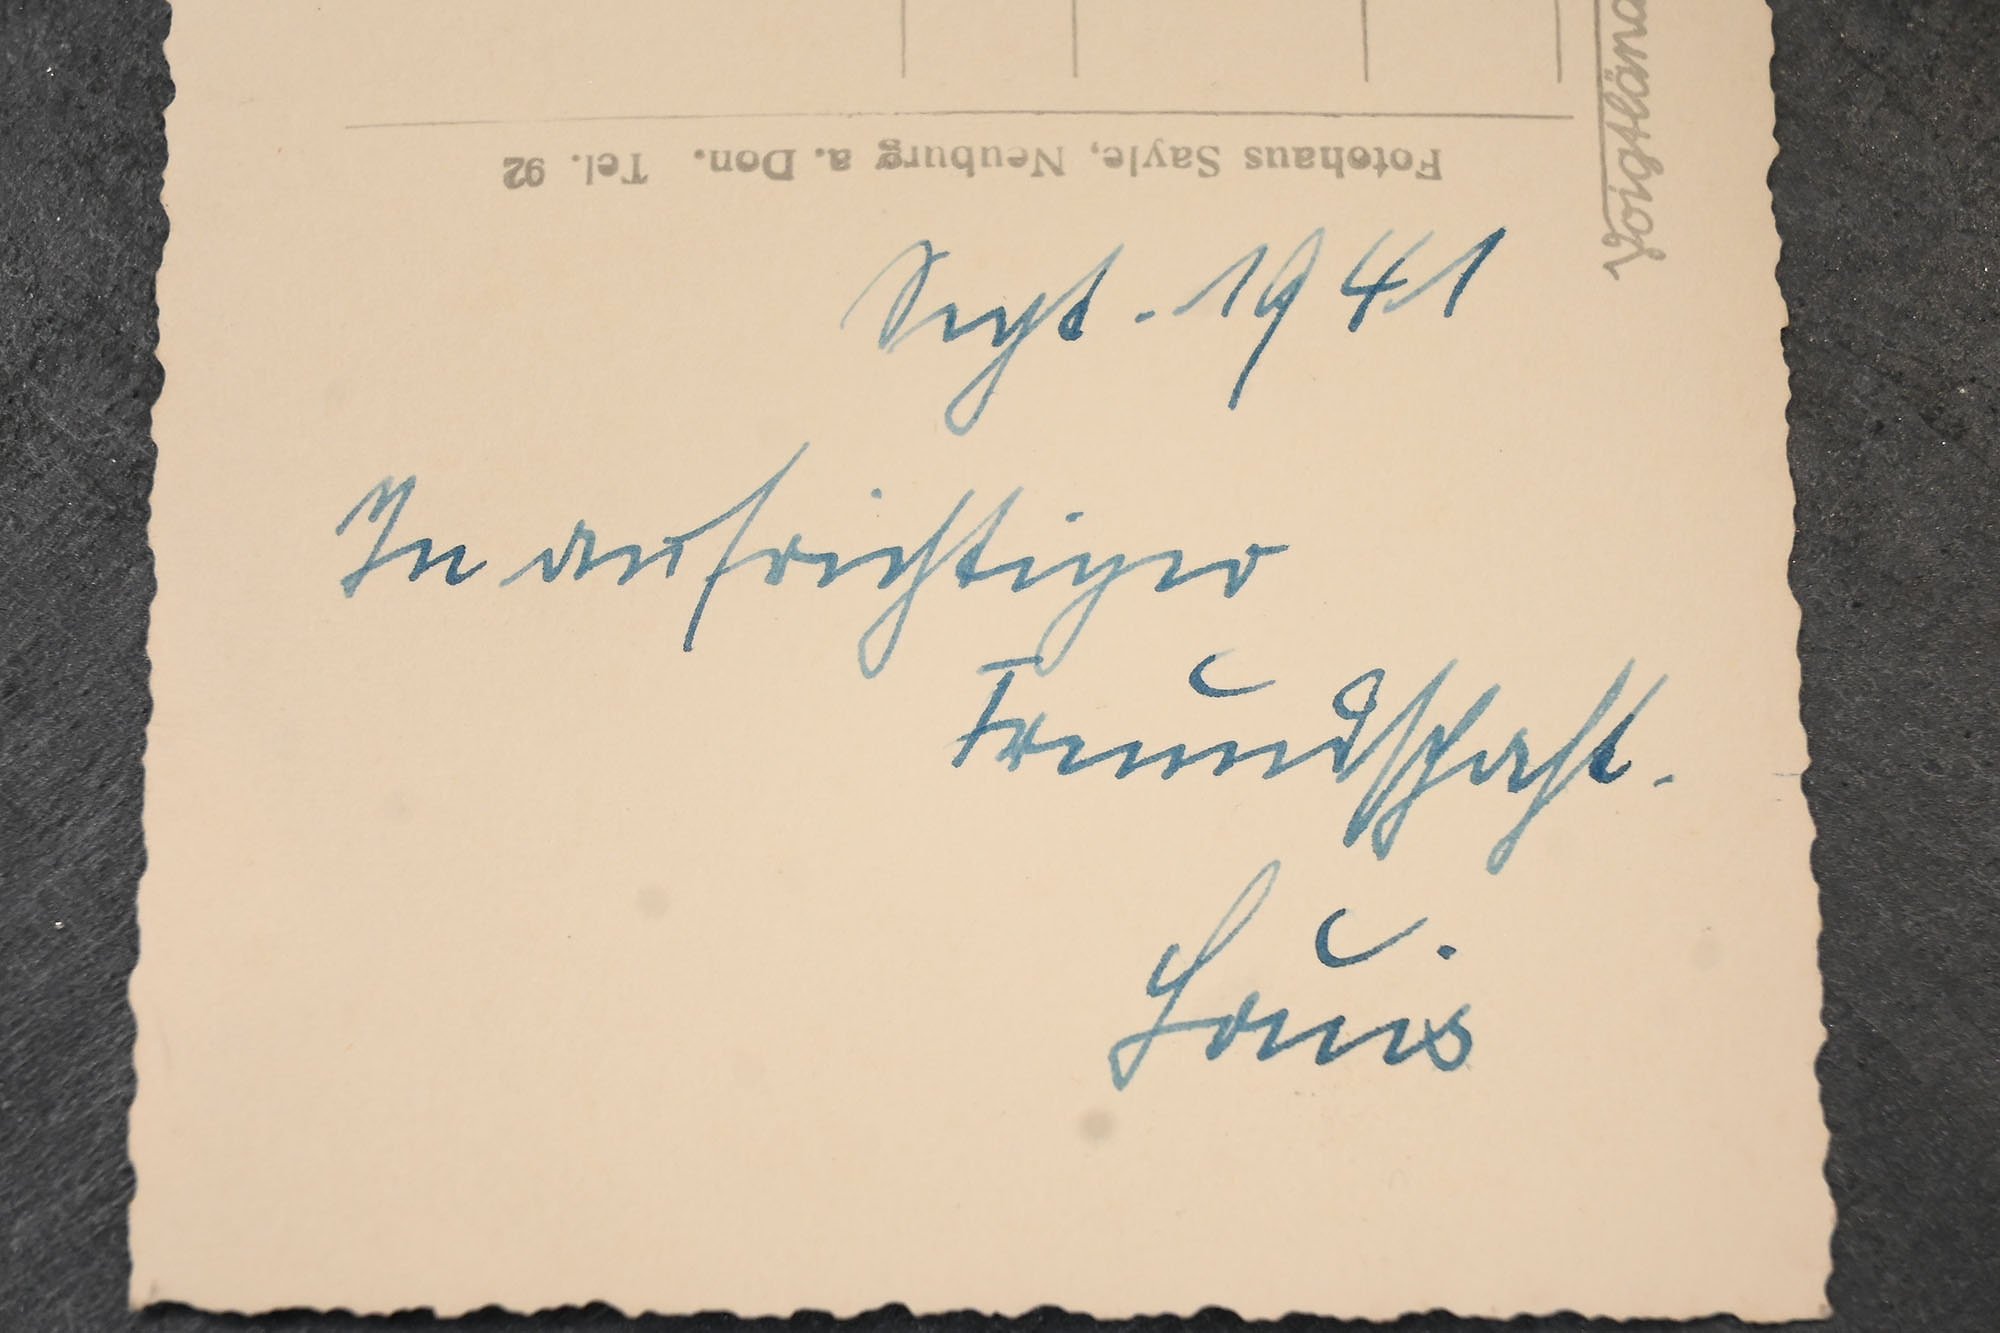 Voigtländ
Fotohaus Sayle, Neuburg a. Don. Tel. 92
Sept. 1941
In aufrichtiger
Freundschaft.
Louis